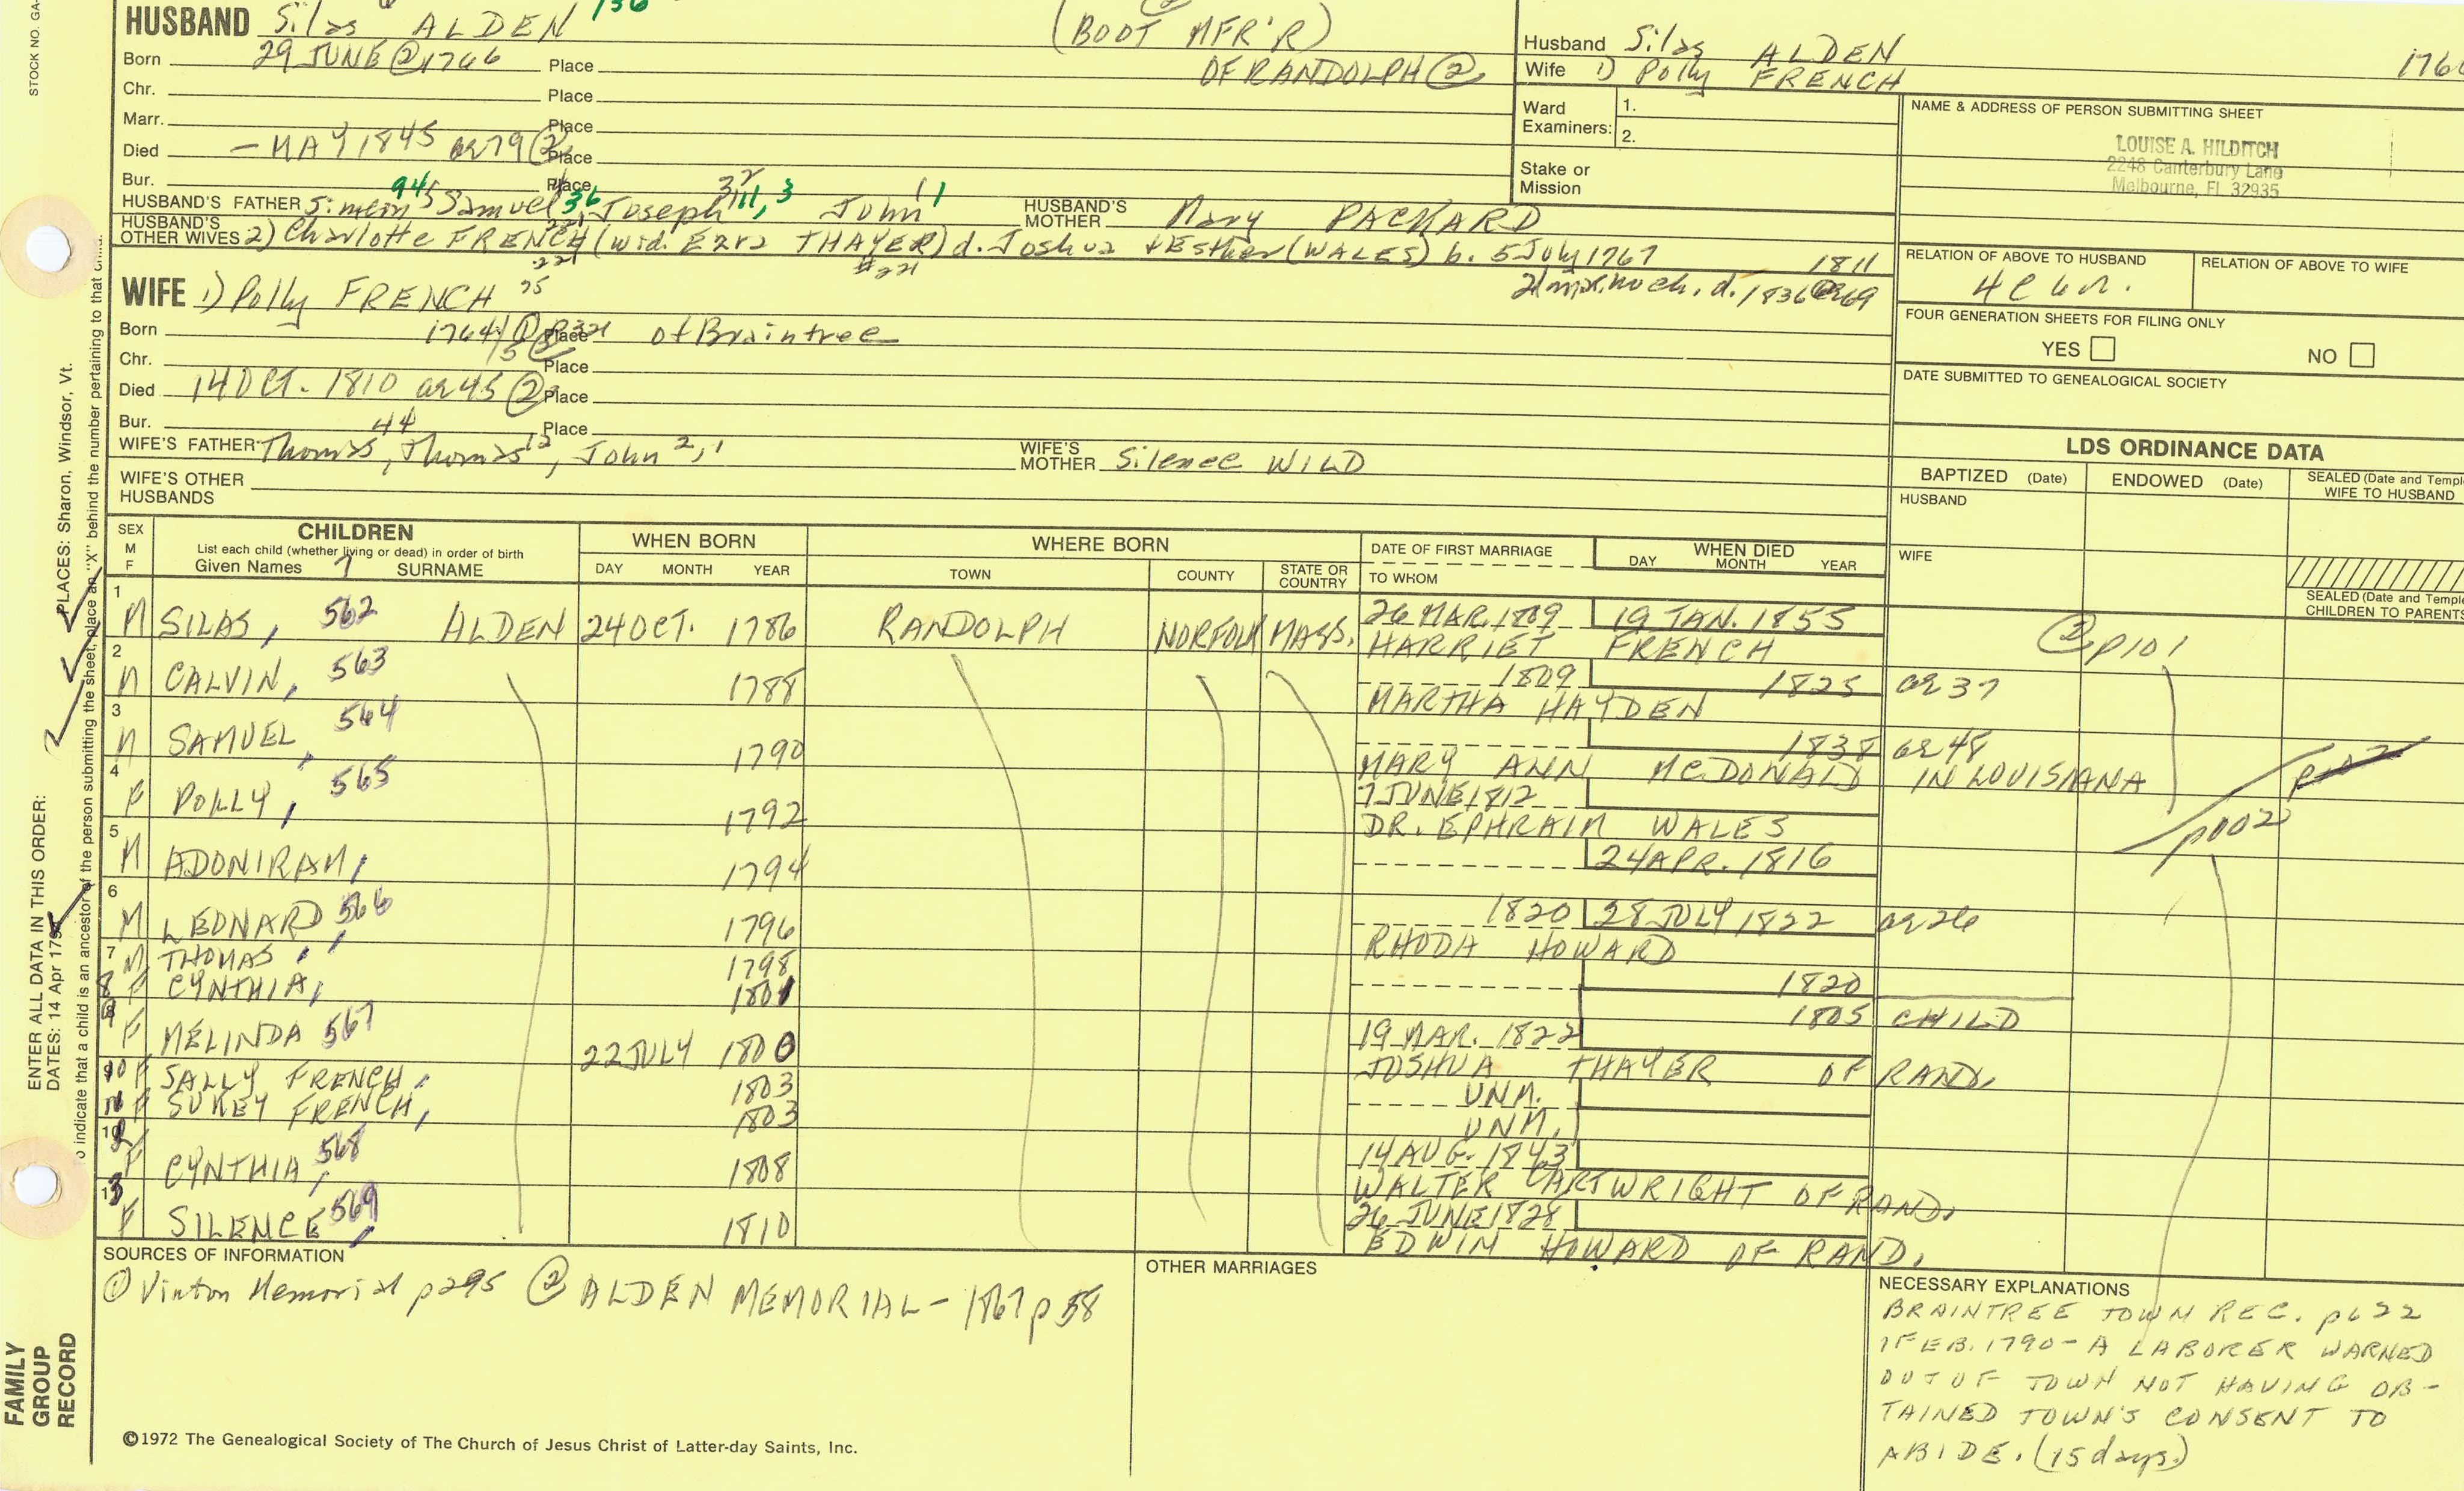 STOCK NO. GA-
HUSBAND Silas ALDEN 136 (BOOT MFR'R)
Born 29 JUNE ② 1766 Place OF RANDOLPH ②
Chr. Place
Marr. Place
Died — MAY 1845 ae 79 ② Place
Bur. Place
HUSBAND'S FATHER Simeon 94/5 Samuel 36, Joseph 32 111, 3 John 11 HUSBAND'S MOTHER Mary PACKARD
HUSBAND'S OTHER WIVES 2) Charlotte FRENCH (wid. Ezra THAYER) d. Joshua & Esther (WALES) b. 5 July 1767 1811
221 #221 no ch. d. 1836 ae 69
WIFE 1) Polly FRENCH 75
Born 1764/5 ① Place of Braintree
Chr. Place
Died 14 OCT. 1810 ae 45 ② Place
Bur. Place
WIFE'S FATHER Thomas 44, Thomas 12, John 2, 1 WIFE'S MOTHER Silence WILD
WIFE'S OTHER HUSBANDS
Husband Silas ALDEN
Wife 1) Polly FRENCH
Ward Examiners: 1.
2.
Stake or Mission
NAME & ADDRESS OF PERSON SUBMITTING SHEET
LOUISE A. HILDITCH
2248 Canterbury Lane
Melbourne, Fl 32935
RELATION OF ABOVE TO HUSBAND RELATION OF ABOVE TO WIFE
FOUR GENERATION SHEETS FOR FILING ONLY
YES NO
DATE SUBMITTED TO GENEALOGICAL SOCIETY
LDS ORDINANCE DATA
BAPTIZED (Date) ENDOWED (Date) SEALED (Date and Templ
WIFE TO HUSBAND
HUSBAND
WIFE
SEALED (Date and Temple
CHILDREN TO PARENTS
SEX M F CHILDREN WHEN BORN WHERE BORN DATE OF FIRST MARRIAGE WHEN DIED
List each child (whether living or dead) in order of birth
Given Names 7 SURNAME DAY MONTH YEAR TOWN COUNTY STATE OR COUNTRY TO WHOM DAY MONTH YEAR
1 M SILAS, 562 ALDEN 24 OCT. 1786 RANDOLPH NORFOLK MASS. 26 MAR. 1809 19 JAN. 1855
HARRIET FRENCH ② p101
2 M CALVIN, 563 1788 1809 1825 ae 37
MARTHA HAYDEN
3 M SAMUEL, 564 1790 1838 ae 48
MARY ANN McDONALD IN LOUISIANA
4 F POLLY, 565 1792 7 JUNE 1812
DR. EPHRAIM WALES
5 M ADONIRAM, 1794 24 APR. 1816
6 M LEONARD, 566 1796 1820 28 JULY 1822 ae 26
RHODA HOWARD
7 M THOMAS, 1798 1820
8 F CYNTHIA, 1801 1805 CHILD
9 F MELINDA 567 22 JULY 1800 19 MAR. 1822
JOSHUA THAYER OF RAND.
10 F SALLY FRENCH, 1803 UNM.
11 F SUKEY FRENCH, 1803 UNM.
12 F CYNTHIA, 568 1808 14 AUG. 1843
WALTER CARTWRIGHT OF RAND.
13 F SILENCE, 569 1810 26 JUNE 1828
EDWIN HOWARD OF RAND.
SOURCES OF INFORMATION
① Vinton Memorial p295 ② ALDEN MEMORIAL - 1867 p 58
OTHER MARRIAGES
NECESSARY EXPLANATIONS
BRAINTREE TOWN REC. p622
1 FEB. 1790 - A LABORER WARNED
OUT OF TOWN NOT HAVING OB-
TAINED TOWN'S CONSENT TO
ABIDE. (15 days.)
©1972 The Genealogical Society of The Church of Jesus Christ of Latter-day Saints, Inc.
FAMILY
GROUP
RECORD
ENTER ALL DATA IN THIS ORDER:
DATES: 14 Apr 179
PLACES: Sharon, Windsor, Vt.
o indicate that a child is an ancestor of the person submitting the sheet, place an "X" behind the number pertaining to that child.